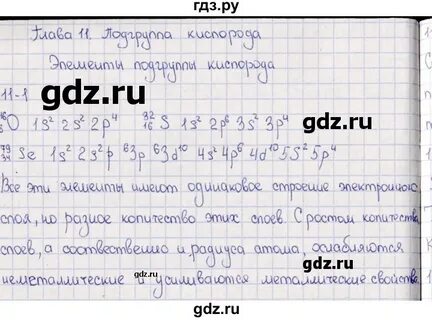 гдз.ру
Глава 11. Подгруппа кислорода
Элементы подгруппы кислорода
gdz.ru
11-1
¹⁶O 1s² 2s² 2p⁴ ³²₁₆S 1s² 2p⁶ 3s² 3p⁴
⁷⁹₃₄Se 1s² 2s² p ⁶3p ⁶3d¹⁰ 4s² 4p⁶ 4d¹⁰ 5s² 5p⁴
gdz.ru
gdz.ru
Все эти элементы имеют одинаковое строение электронного
слоя, но разное количество этих слоев. С ростом количества
gdz.ru
слоев, а соотвественно и радиуса атома, ослабляются
неметаллические и усиливаются металлические свойства.
gdz.ru